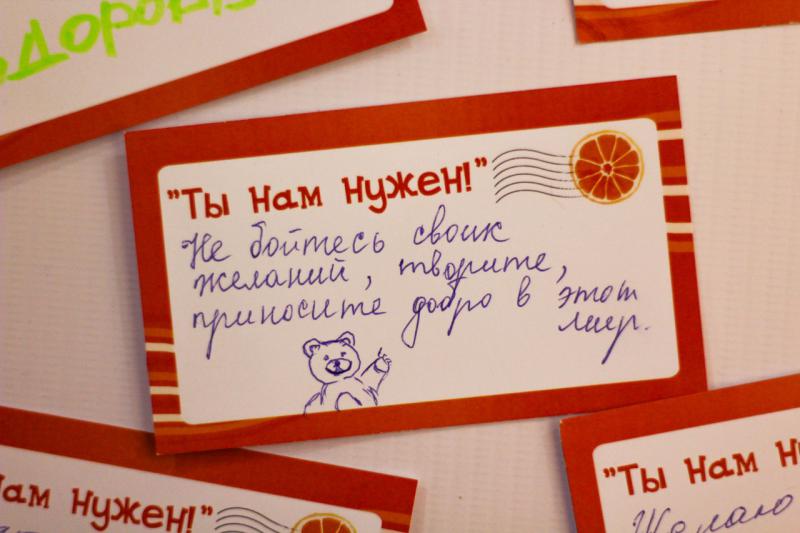 Дорог
"Ты нам нужен!"
Не бойтесь своих
желаний, творите,
приносите добро в этот
мир.
ам нужен!"
"Ты нам н
Желаю